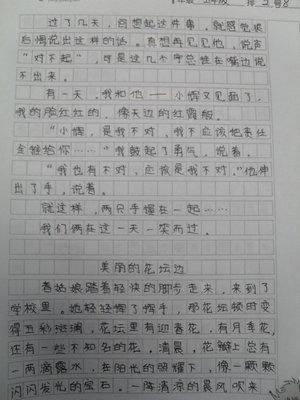 过了几天,回想起这件事,就感觉很
后悔说出这样的话。真想再见见他,说声
“对不起”,可是这几个字总挂在嘴边说
不出来。
有一天,我和他——小辉又见面了,
我的脸红红的,像天边的红霞般。
“小辉,是我不对,我不应该把责任
全推给你……”我鼓起了勇气,说着。
“我也有不对,应该是我不对。”他伸
出了手,说着。
就这样,两只手握在一起……
我们俩在这一天一笑而过。
美丽的花坛边
春姑娘踏着轻快的脚步走来,来到了
学校里。她轻轻挥了挥手,那花坛顿时变
得五彩斑斓,花坛里有迎春花,有月季花,
还有一些不知名的花。清晨,花瓣上总有
一两滴露水,在阳光的照耀下,像一颗颗
闪闪发光的宝石。一阵清凉的晨风吹来,